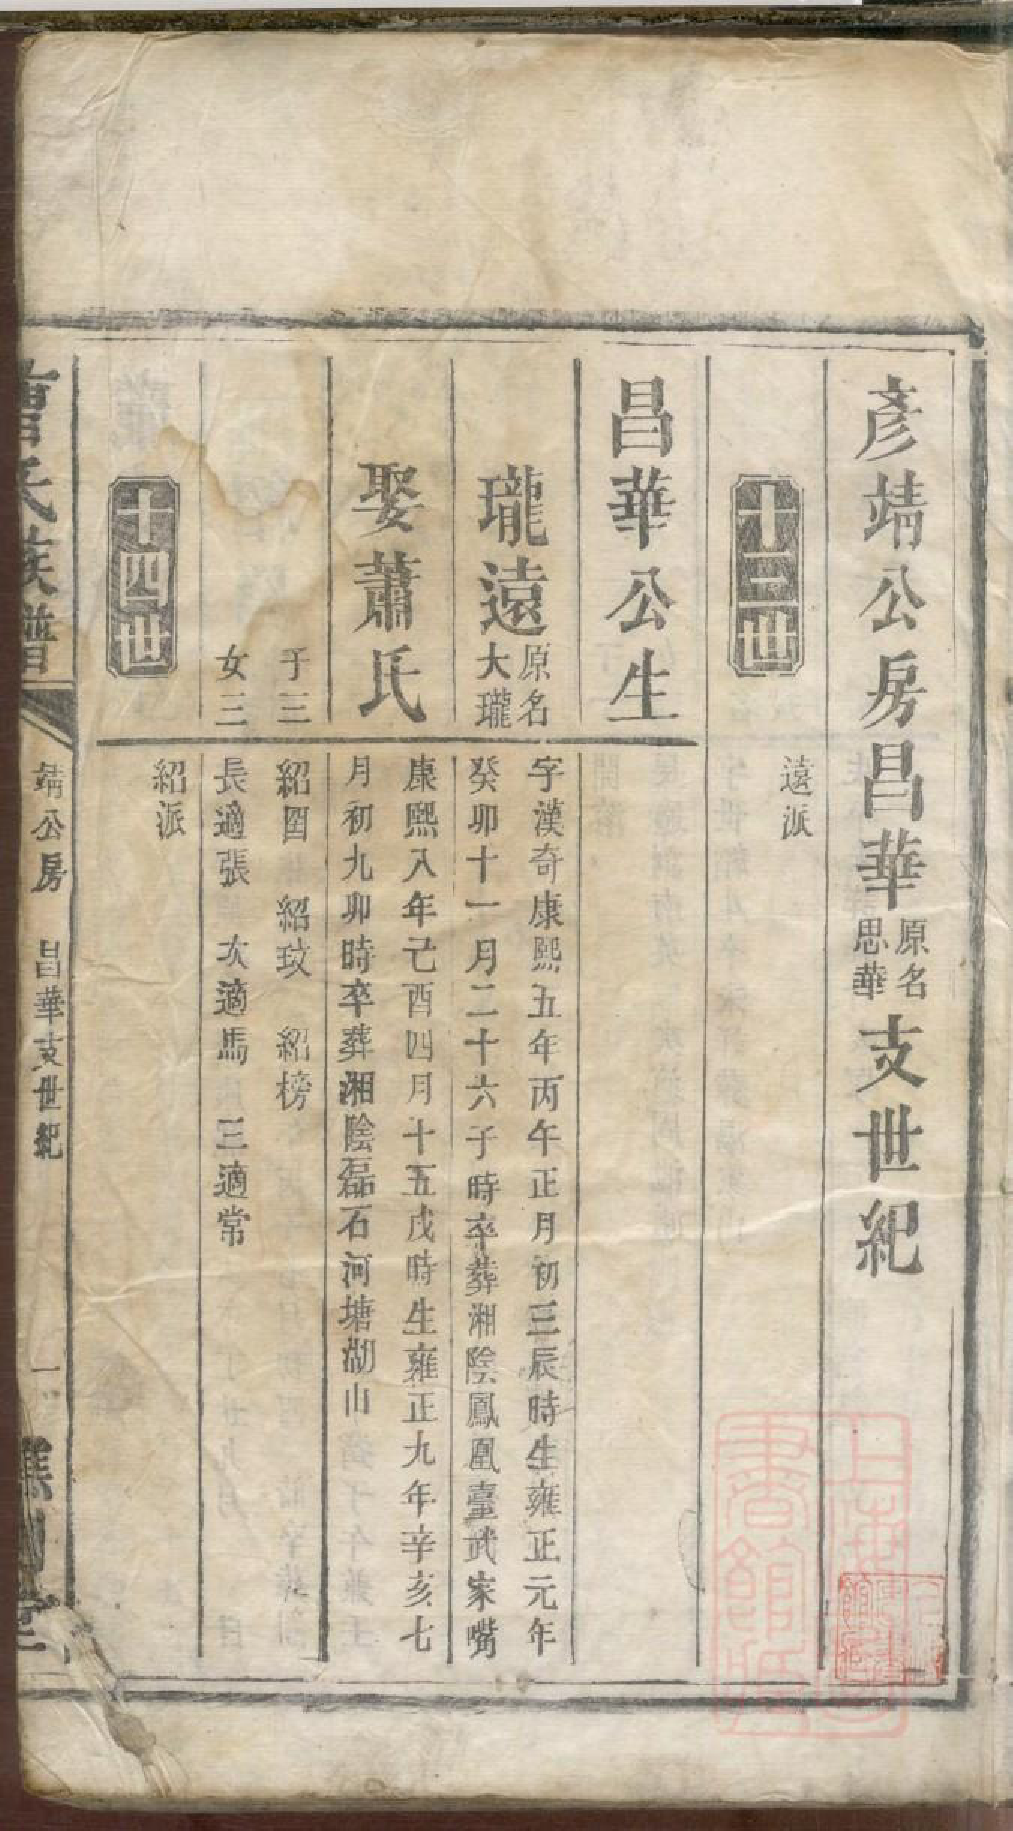 彥靖公房昌華原名思華支世紀
十三世
遠派
昌華公生
瓏遠原名大瓏
字漢奇康熙五年丙午正月初三辰時生雍正元年
癸卯十一月二十六子時卒葬湘陰鳳凰臺武家嘴
娶蕭氏
康熙八年己酉四月十五戌時生雍正九年辛亥七
月初九卯時卒葬湘陰磊石河塘湖山
子三
紹圄 紹玟 紹榜
女三
長適張 次適馬 三適常
十四世
紹派
曹氏族譜
靖公房 昌華支世紀
一